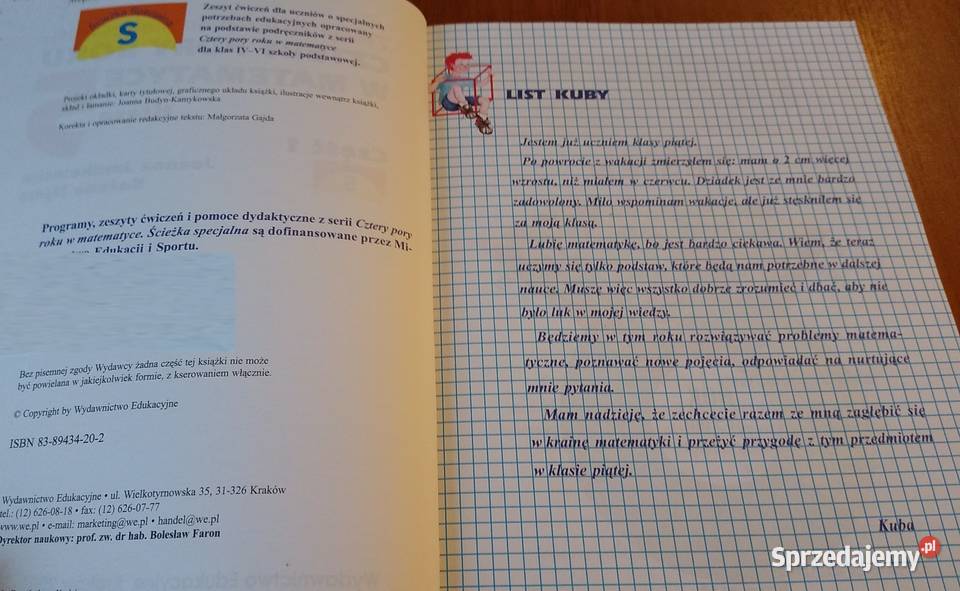 S
Zeszyt ćwiczeń dla uczniów o specjalnych
potrzebach edukacyjnych opracowany
na podstawie podręczników z serii
Cztery pory roku w matematyce
dla klas IV–VI szkoły podstawowej.
Projekt okładki, karty tytułowej, graficznego układu książki, ilustracje wewnątrz książki,
skład i łamanie: Joanna Budyn-Kamykowska
Korekta i opracowanie redakcyjne tekstu: Małgorzata Gajda
Programy, zeszyty ćwiczeń i pomoce dydaktyczne z serii Cztery pory
roku w matematyce. Ścieżka specjalna są dofinansowane przez Mi-
Edukacji i Sportu.
Bez pisemnej zgody Wydawcy żadna część tej książki nie może
być powielana w jakiejkolwiek formie, z kserowaniem włącznie.
© Copyright by Wydawnictwo Edukacyjne
ISBN 83-89434-20-2
Wydawnictwo Edukacyjne • ul. Wielkotyrnowska 35, 31-326 Kraków
tel.: (12) 626-08-18 • fax: (12) 626-07-77
www.we.pl • e-mail: marketing@we.pl • handel@we.pl
Dyrektor naukowy: prof. zw. dr hab. Bolesław Faron
LIST KUBY
Jestem już uczniem klasy piątej.
Po powrocie z wakacji zmierzyłem się: mam o 2 cm więcej
wzrostu, niż miałem w czerwcu. Dziadek jest ze mnie bardzo
zadowolony. Miło wspominam wakacje, ale już stęskniłem się
za moją klasą.
Lubię matematykę, bo jest bardzo ciekawa. Wiem, że teraz
uczymy się tylko podstaw, które będą nam potrzebne w dalszej
nauce. Muszę więc wszystko dobrze zrozumieć i dbać, aby nie
było luk w mojej wiedzy.
Będziemy w tym roku rozwiązywać problemy matema-
tyczne, poznawać nowe pojęcia, odpowiadać na nurtujące
mnie pytania.
Mam nadzieję, że zechcecie razem ze mną zagłębić się
w krainę matematyki i przeżyć przygodę z tym przedmiotem
w klasie piątej.
Kuba
Sprzedajemy.pl